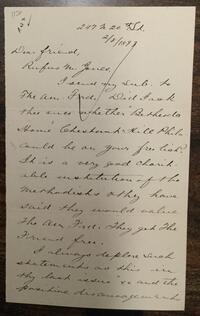 247 N 20th St.
2/8/1899
Dear friend,
Rufus M. Jones,
I send my sub. to
The Am. Frd. Did I ask
thee once whether Bethesda
Home Chestnut Hill Phila
could be on your free list?
It is a very good charit-
able institution of the
Methodists & they have
said they would value
The Am. Frd. They get The
Friend free.
I always deplore such
statements as this in
thy last issue & and the
positive discouragement